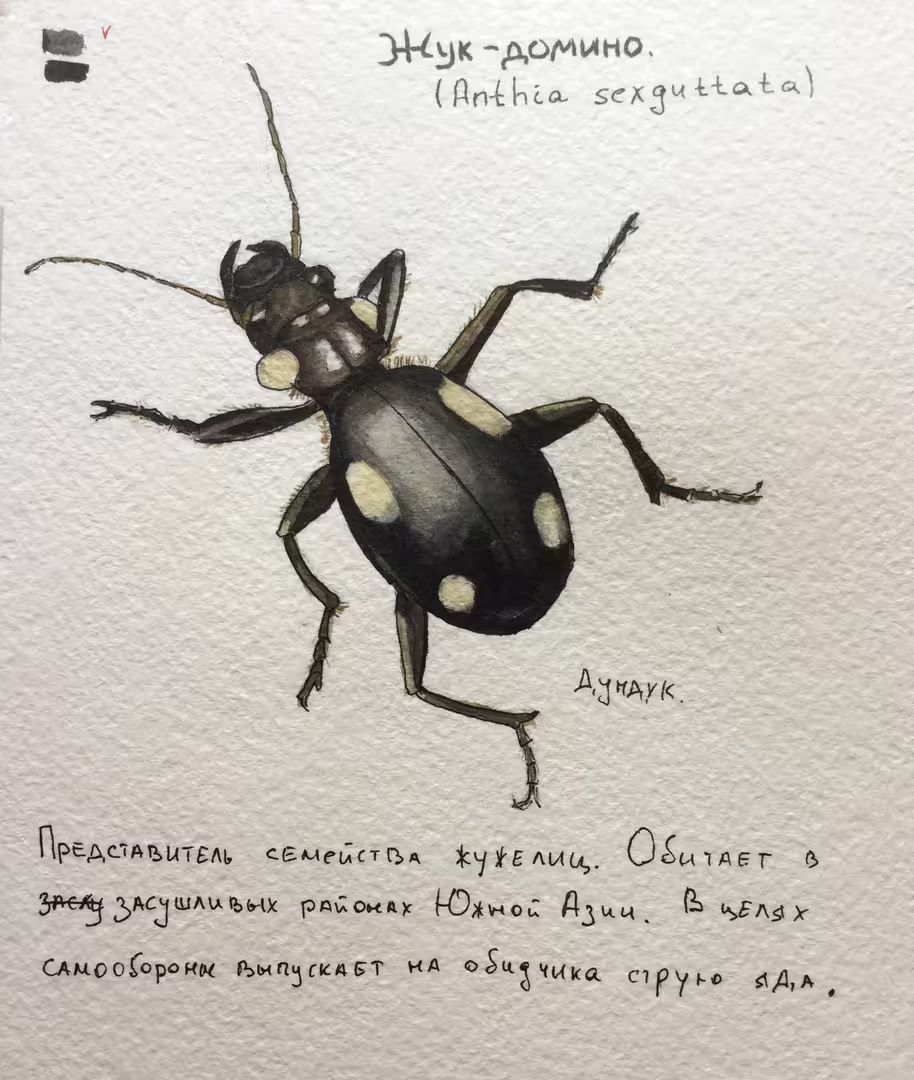 Жук-домино.
(Anthia sexguttata)
Дундук.
Представитель семейства жужелиц. Обитает в
засу засушливых районах Южной Азии. В целях
самообороны выпускает на обидчика струю яда.